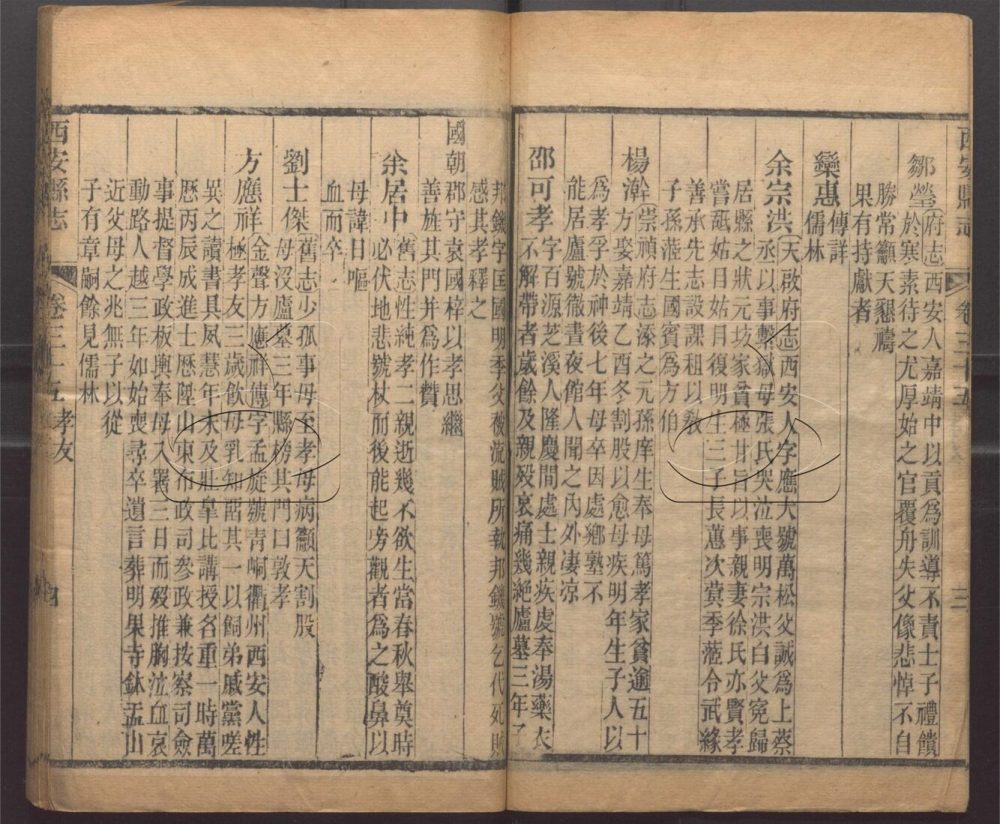 西安縣志 卷三十五 三
鄒瑩 府志西安人嘉靖中以貢為訓導不責士子禮饋
於寒素待之尤厚始之官覆舟失父像悲悼不自
勝常籲天懇禱
果有持獻者
欒惠 傳詳
儒林
余宗洪 天啟府志西安人字應大號萬松父誠為上蔡
丞以事繫獄母張氏哭泣喪明宗洪白父寃歸
居縣之狀元坊家貧極甘旨以事親妻徐氏亦賢孝
嘗舐姑目姑目復明生三子長蕙次蓂季蒞令甙緣
善承先志設課租以敎
子孫蒞生國賓為方伯
楊瀚 崇禎府志溙之元孫庠生奉母篤孝家貧逾五十
方娶嘉靖乙酉冬割股以愈母疾明年生子人以
為孝孚於神後七年母卒因處鄉塾不
能居廬號徹晝夜館人聞之內外凄凉
邵可孝 字百源芝溪人隆慶間處士親疾處奉湯藥衣
不解帶者歲餘及親歿哀痛幾絕廬墓三年
邦鏸字匡國明季父被流賊所執邦鏸號乞代死賊
感其孝釋之
國朝郡守袁國梓以孝思繼
善旌其門并為作贊
余居中 舊志性純孝二親逝幾不欲生當春秋舉奠時
必伏地悲號杖而後能起旁觀者為之酸鼻以
母諱日嘔
血而卒
劉士傑 舊志少孤事母至孝母病籲天割股
母沒廬墓三年縣榜其門曰敦孝
方應祥 金聲方應祥傳字孟旋號青峒衢州西安人性
極孝友三歲飲母乳知畱其一以飼弟戚黨嗟
異之讀書具夙慧年未及壯皐比講授名重一時萬
歷丙辰成進士歷陞山東布政司參政兼按察司僉
事提督學政板輿奉母入署三日而歿推胸泣血哀
動路人越三年如始喪尋卒遺言葬明果寺鉢盂山
近父母之兆無子以從
子有章嗣餘見儒林
西安縣志 卷三十五 孝友 四